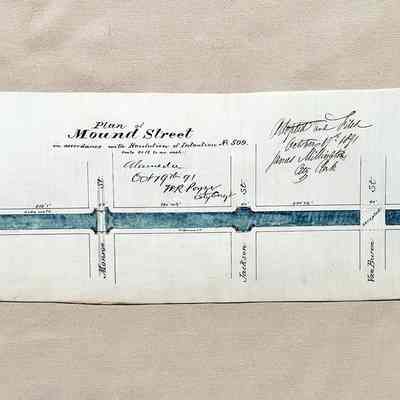 Plan of
Mound Street
in accordance with Resolution of Intention No 509.
Scale 50 ft to an inch.
Alameda
Oct 19th 91
City Engr
Adopted and Filed
October 19th 1891
James Millington
City Clerk
Monroe St
Jackson St
Van Buren St